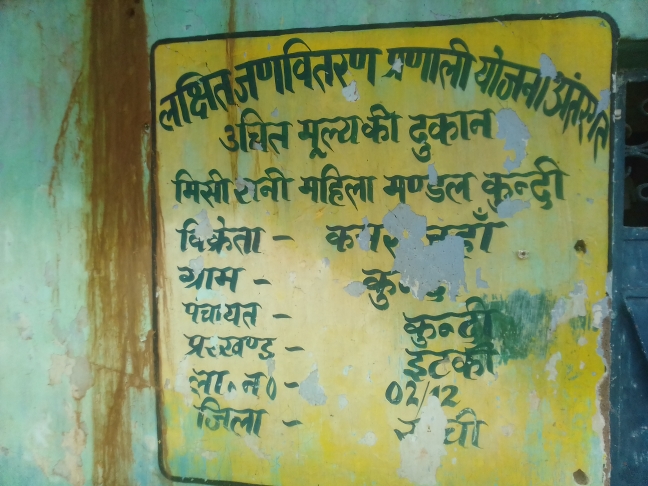 लक्षित जणवितरण प्रणाली योजना
उचित मूल्य की दुकान
मिसी रानी महिला मण्डल कुन्दी
विक्रेता -
ग्राम -
पंचायत - कुन्दी
प्रखण्ड - इटकी
ला. न० - 02/12
जिला -